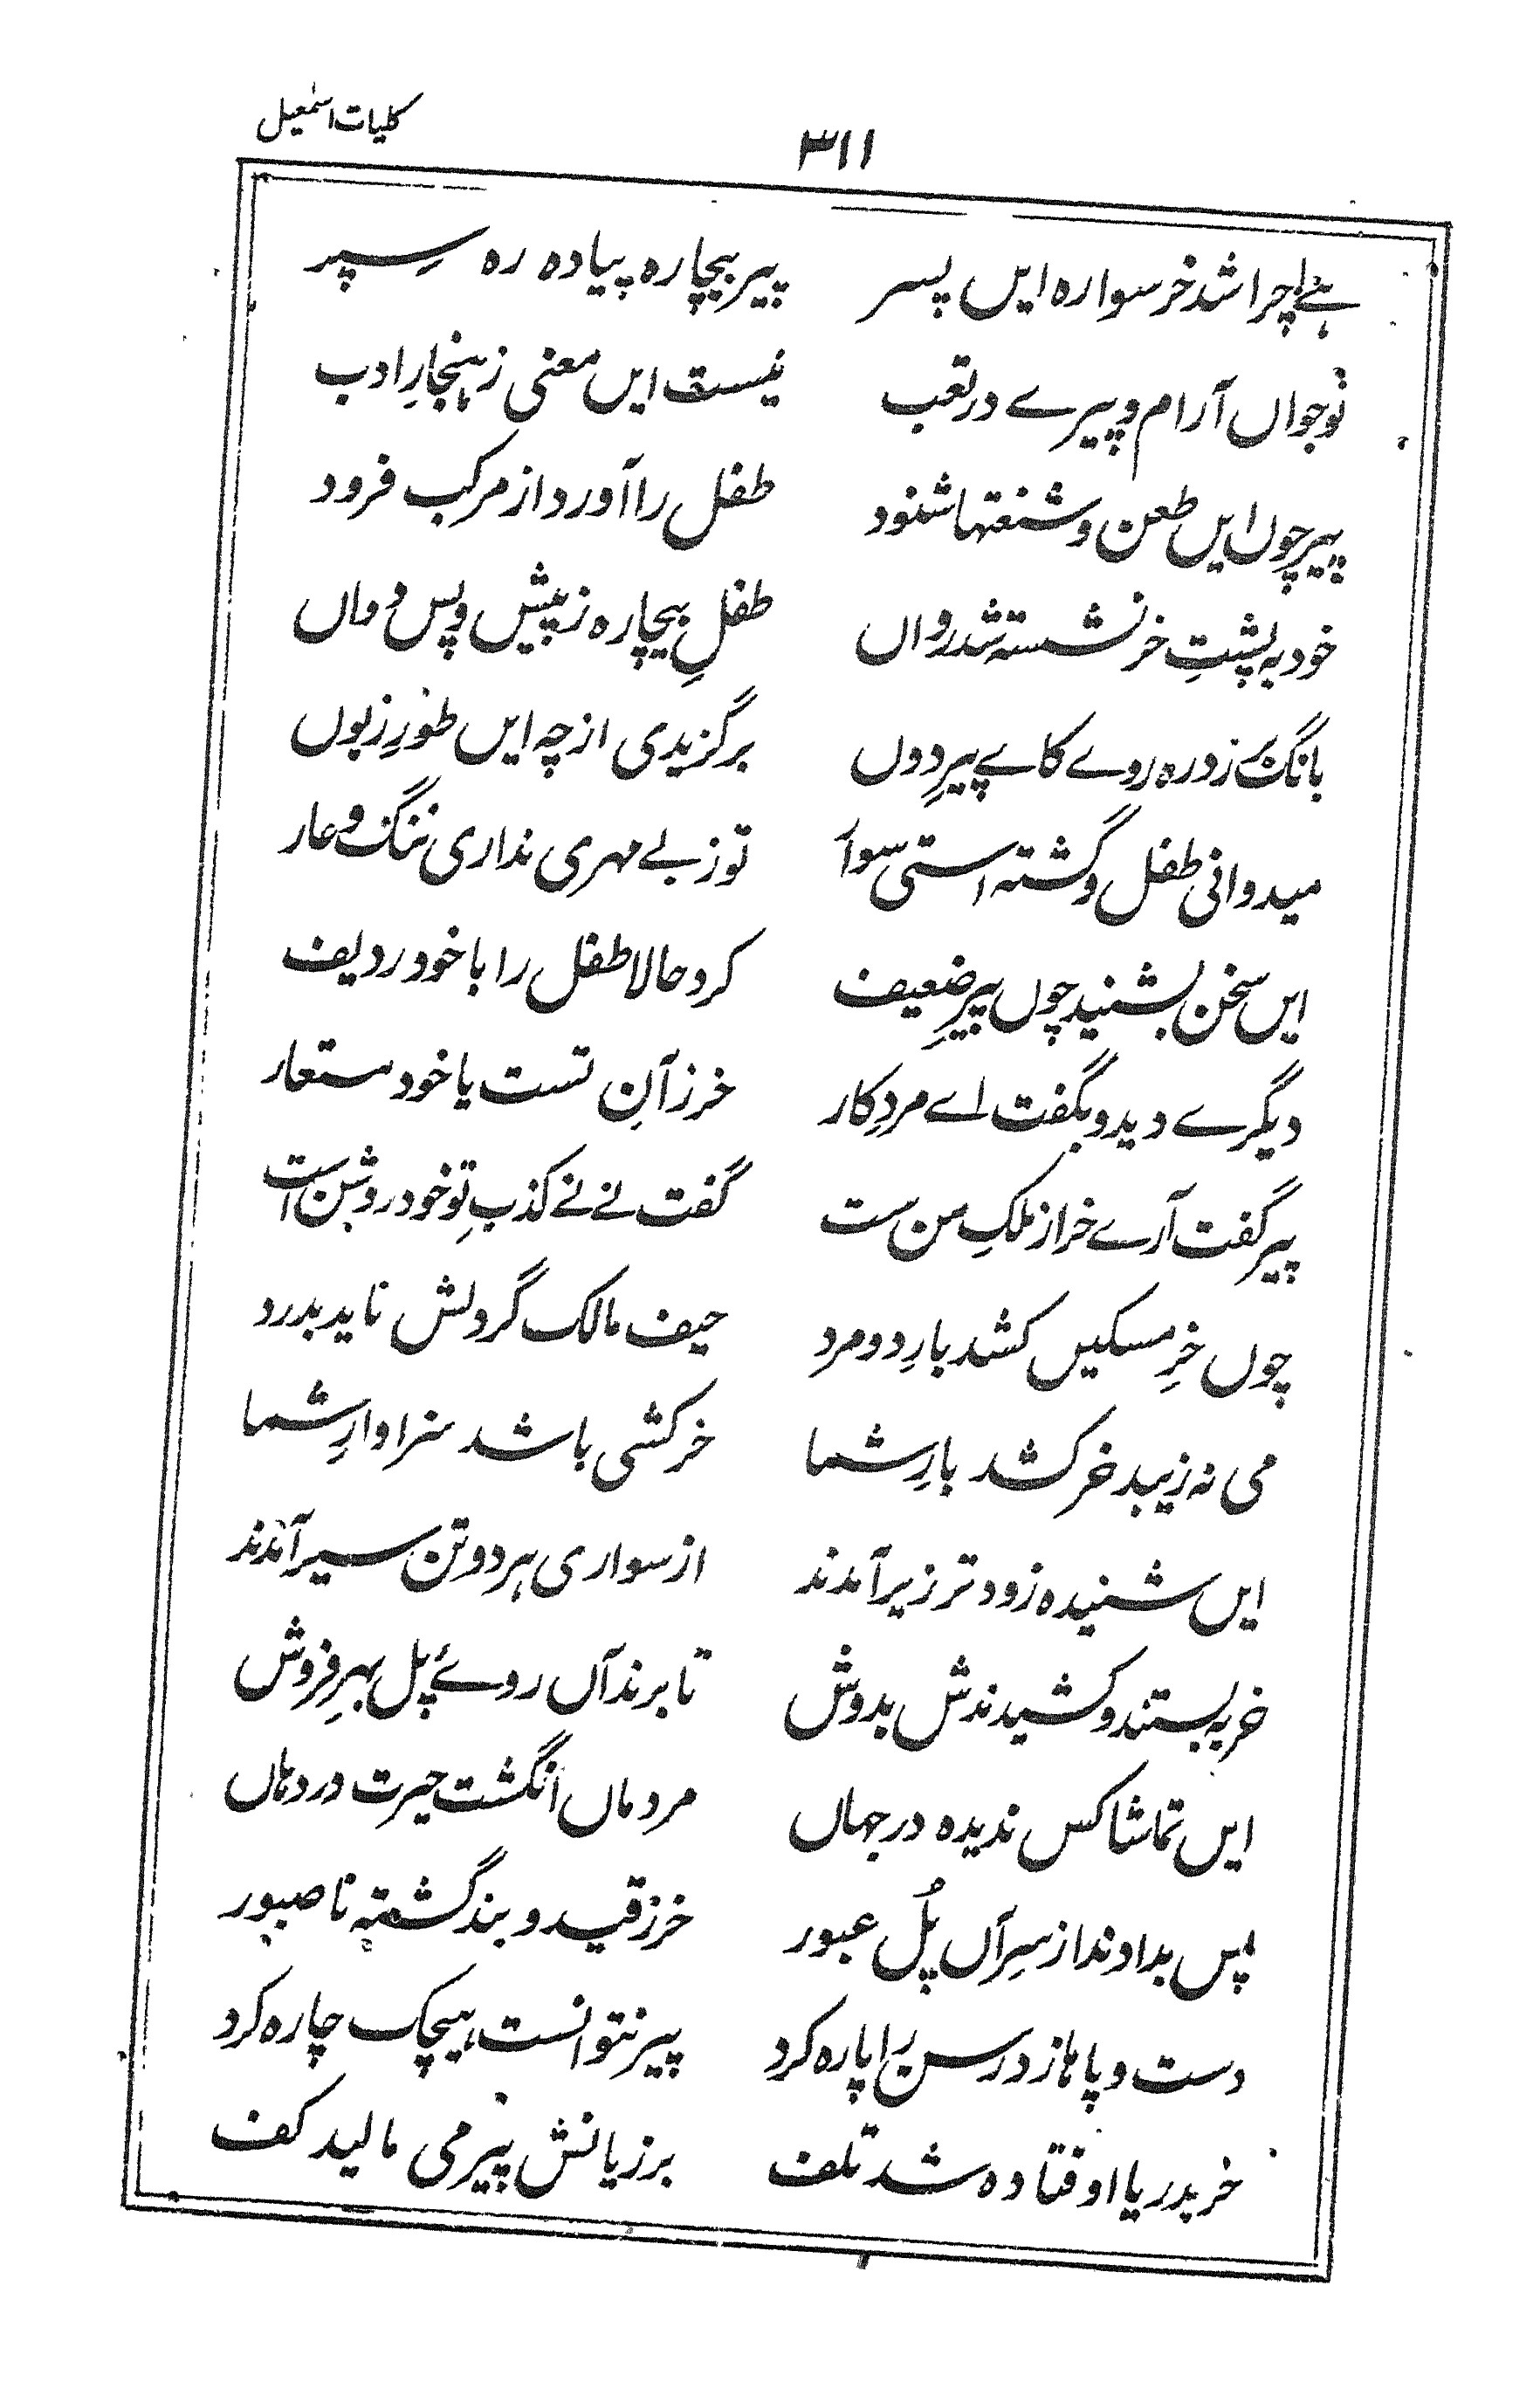 کلیات اسمٰعیل
۳۱۱
ہئے! چرا شد خر سوارہ ایں پسر پیر بیچارہ پیادہ رہ سِپر
نوجواں آرام و پیرے در تعب نیست ایں معنی ز ہنجارِ ادب
پیر چوں ایں طعن و شنعتہا شنود طفل را آورد از مرکب فرود
خود بہ پشتِ خر نشستہ شد رواں طفلِ بیچارہ ز پیش و پس دواں
بانگ بر زد رہ روے کاے پیرِ دوں برگزیدی از چہ ایں طورِ زبوں
میدوانی طفل و گشتہ استی سوار تو ز بے مہری نداری ننگ و عار
ایں سخن بشنید چوں پیرِ ضعیف کرد حالا طفل را با خود ردیف
دیگرے دید و بگفت اے مردِ کار خر ز آنِ تست یا خود مستعار
پیر گفت آرے خر از ملکِ من ست گفت نے نے کذبِ تو خود روشن است
چوں خرِ مسکیں کشد بارِ دو مرد حیف مالک گر دلش ناید بدرد
می نہ زیبد خر کشد بارِ شما خر کشی باشد سزاوارِ شما
ایں شنیدہ زود تر زیر آمدند از سواری ہر دو تن سیر آمدند
خر بہ بستند و کشیدندش بدوش تا برند آں روئے پل بہرِ فروش
ایں تماشا کس ندیدہ در جہاں مردماں انگشت حیرت در دہاں
پس بدادند از سرِ آں پُل عبور خر ز قید و بند گشتہ ناصبور
دست و پاہا زد رسن را پارہ کرد پیر نتوانست ہیچک چارہ کرد
خر بدریا اوفتادہ شد تلف بر زیانش پیر می مالید کف